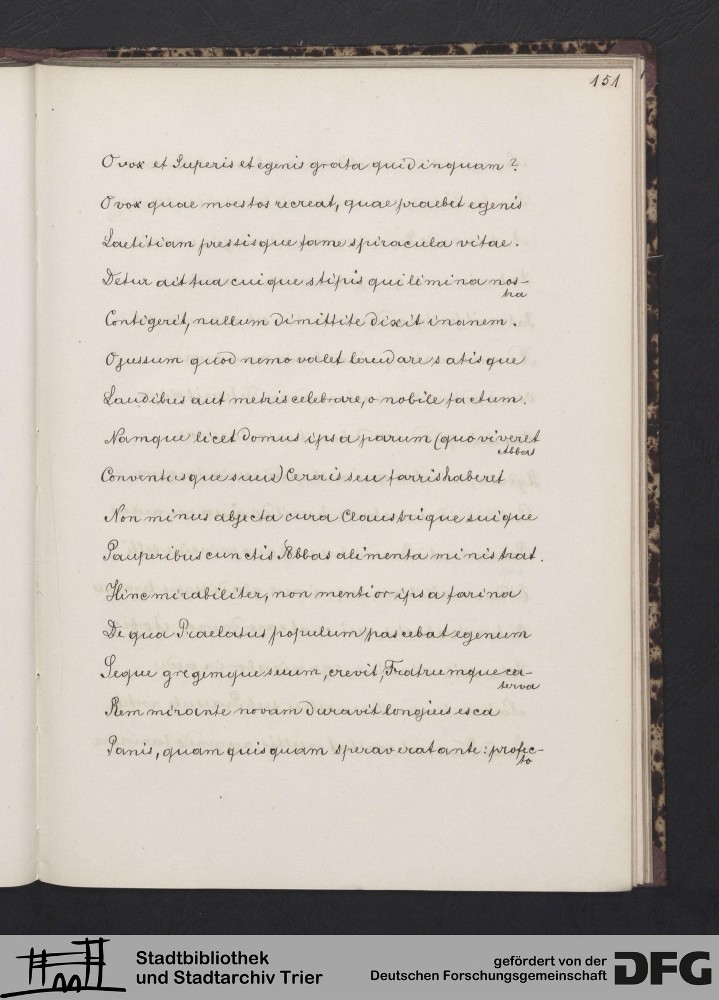 151
O vox et Superis et egenis grata quid inquam?
O vox quae moestos recreat, quae praebet egenis
Laetitiam pressisque fame spiracula vitae.
Detur ait tua cuique stipis qui limina nos-
tra
Contigerit, nullum dimittite dixit inanem.
O jussum quod nemo valet laudare satisque
Laudibus aut metris celebrare, o nobile factum.
Namque licet domus ipsa parum (quo viveret
Abbas
Conventusque suus) Cereris seu farris haberet
Non minus abjecta cura Claustrique suique
Pauperibus cunctis Abbas alimenta ministrat.
Hinc mirabiliter, non mentior ipsa farina
De qua Praelatus populum pascebat egenum
Seque gregemque suum, crevit, Fratrumque ca-
terva
Rem mirante novam duravit longius esca
Panis, quam quisquam speraverat ante: profec-
to
Stadtbibliothek
und Stadtarchiv Trier
gefördert von der
Deutschen Forschungsgemeinschaft
DFG